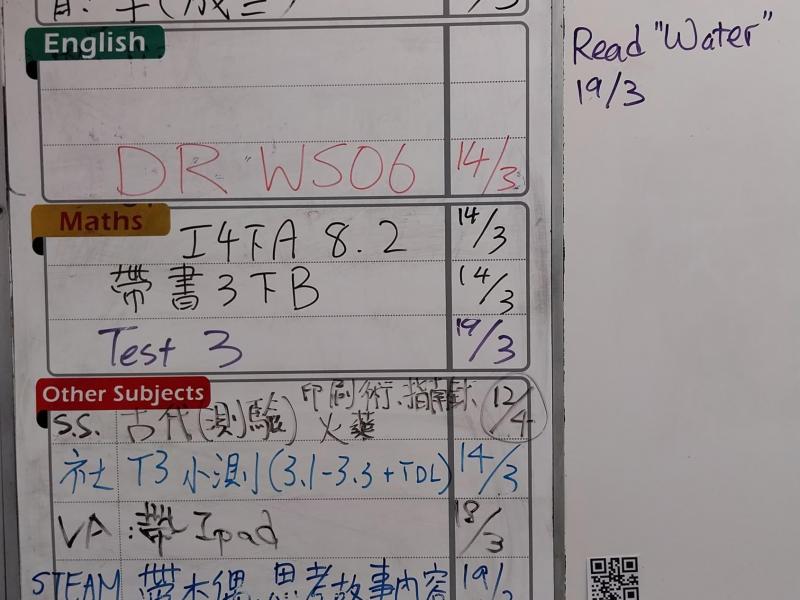 English
DR WS06 14/3
Maths
I4下A 8.2 14/3
帶書3下B 14/3
Test 3 19/3
Other Subjects
印刷術、指南針、
S.S. 古代(測驗) 火藥 12/4
社 T3 小測(3.1-3.3+TDL) 14/3
VA :帶Ipad 18/3
STEAM 帶木偶、思考故事內容 19/3
Read "Water"
19/3